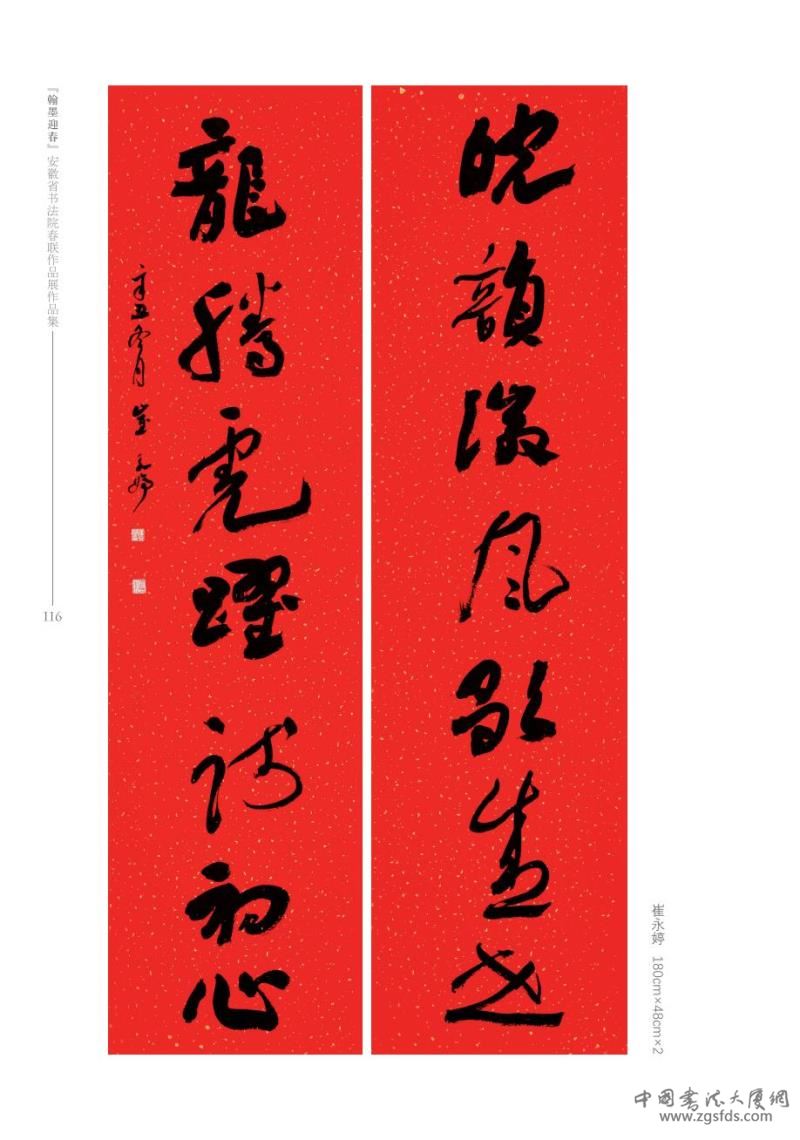 皖韻徽风歌盛世
龍腾虎躍初心
辛丑冬月 崔永婷
『翰墨迎春』安徽省书法院春联作品展作品集
116
崔永婷 180cm×48cm×2
中國書法大廈網
www.zgsfds.com